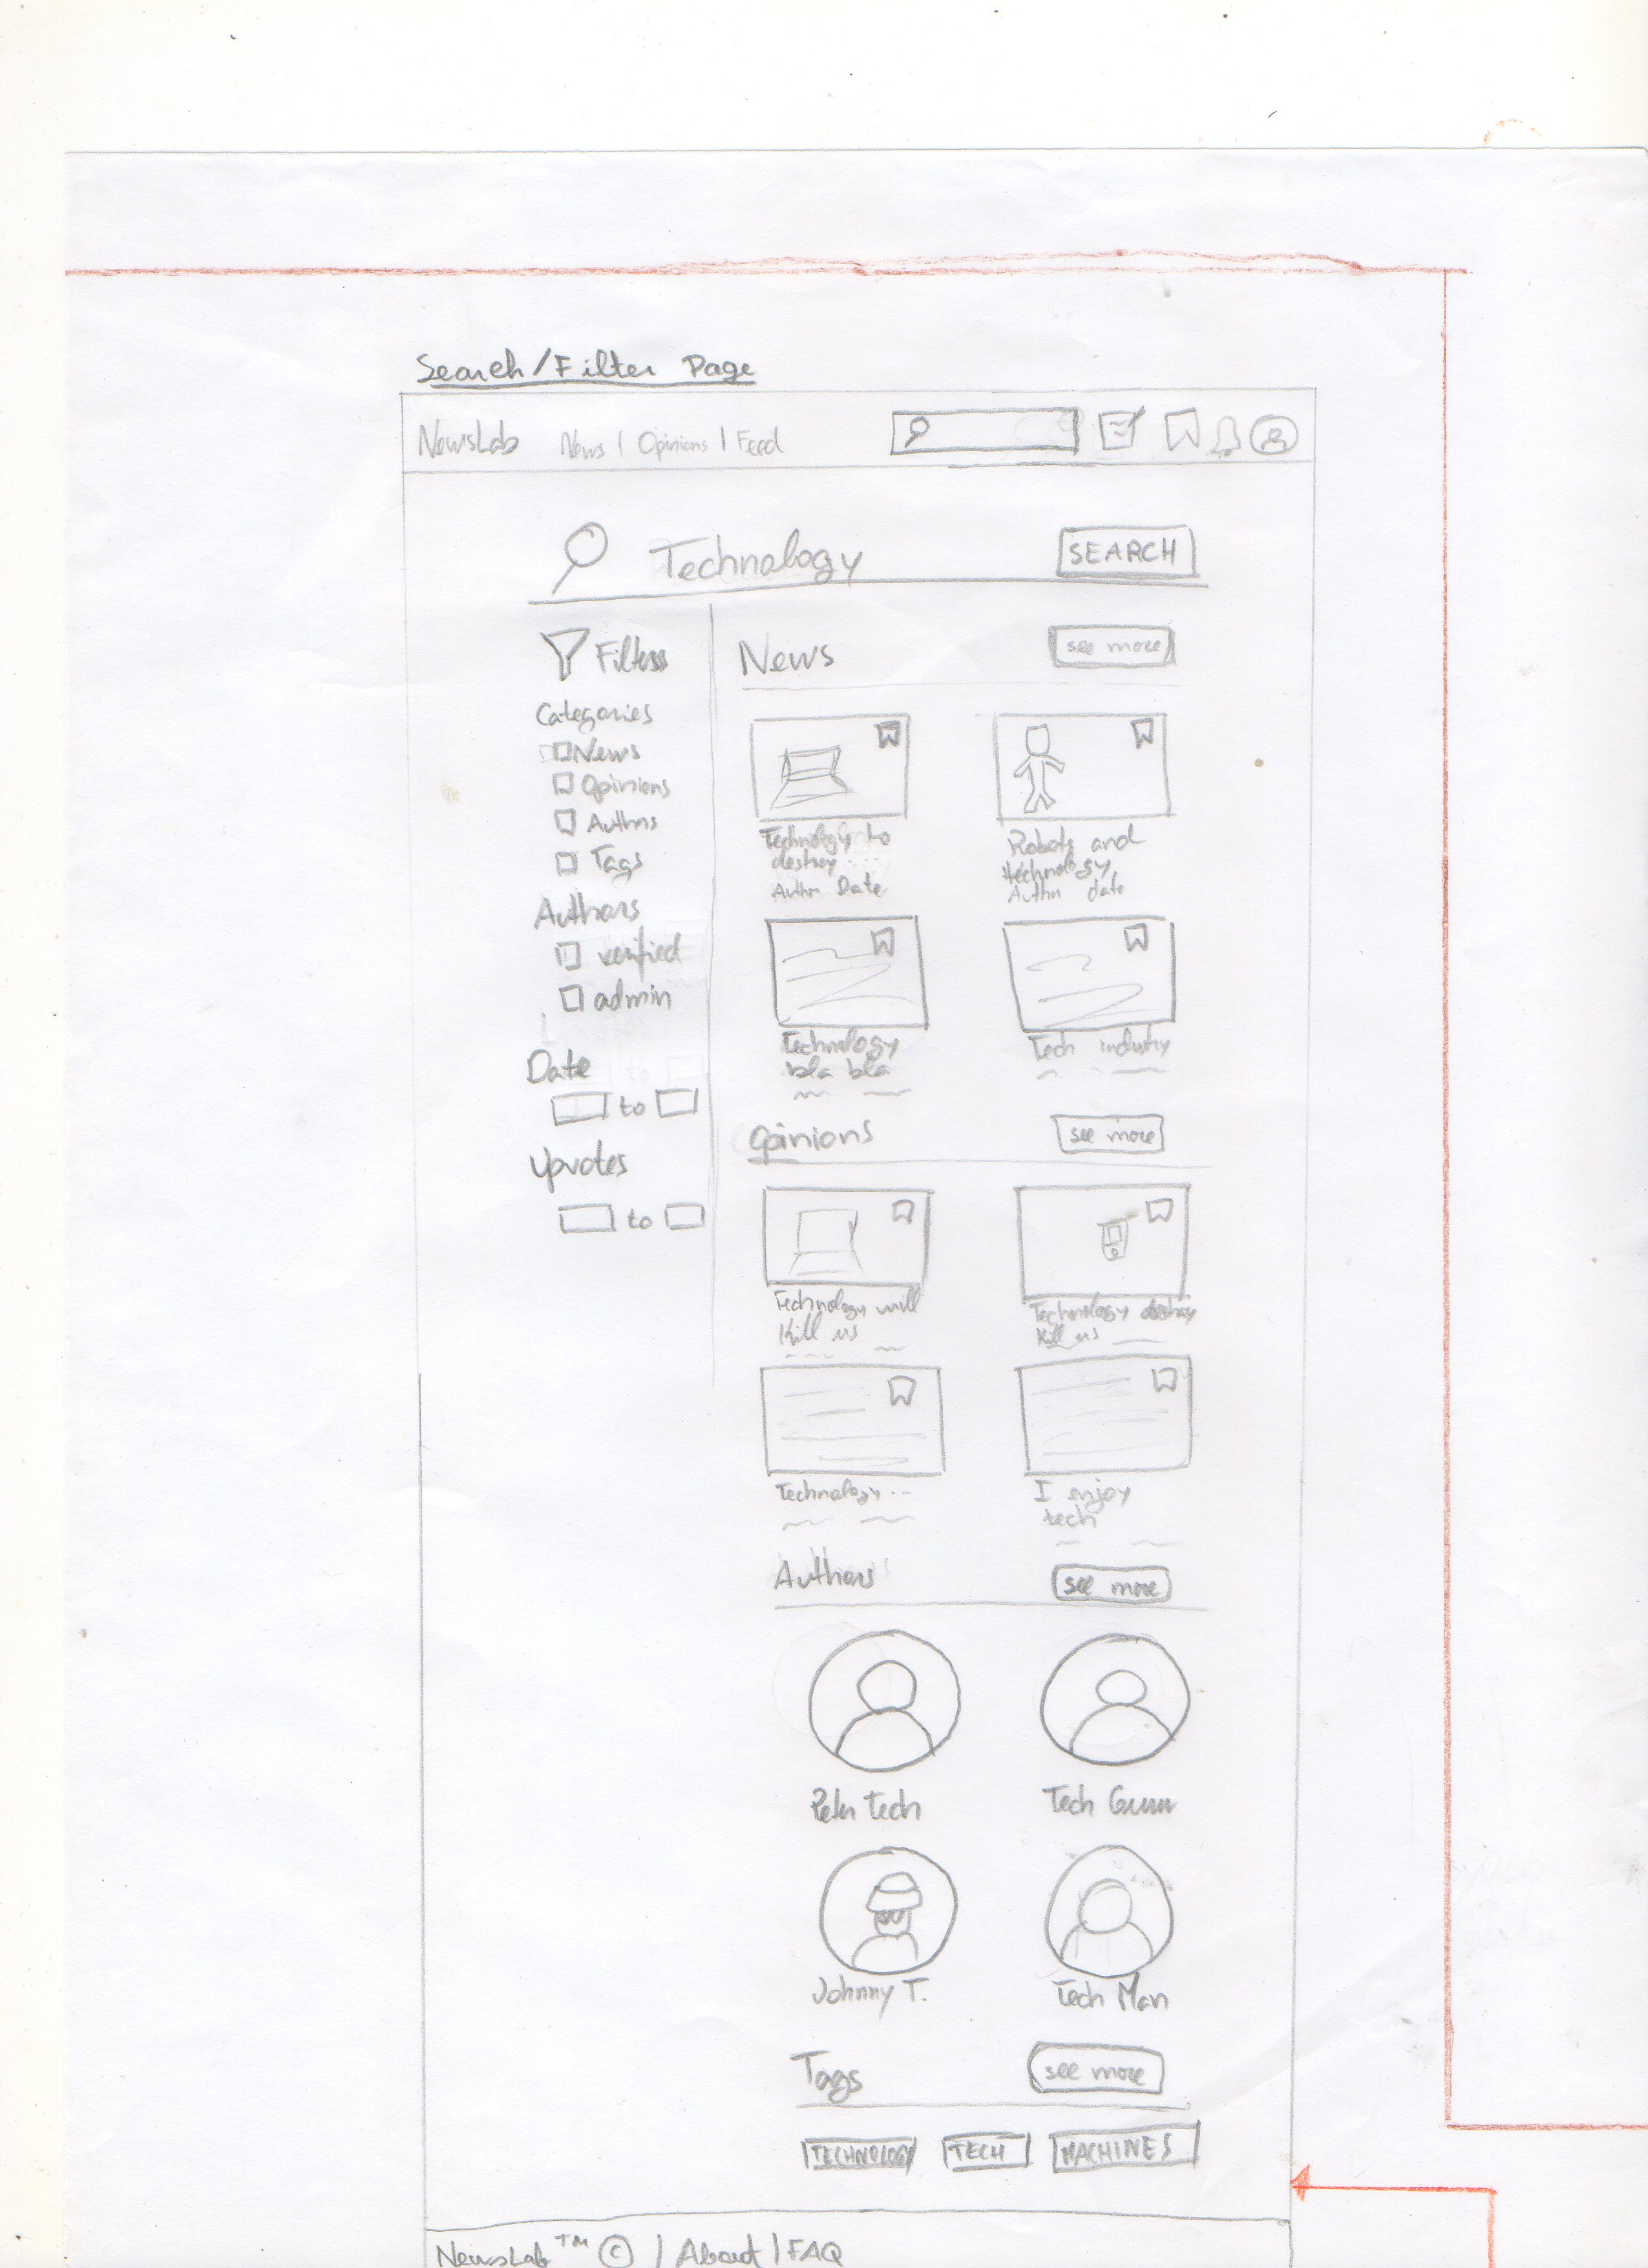 Search/Filter Page
NewsLab News | Opinions | Feed
Technology SEARCH
Filters
Categories
News
Opinions
Authors
Tags
Authors
verified
admin
Date
to
Upvotes
to
News see more
Technology to
destroy ....
Author Date
Robots and
technology
Author date
Technology
bla bla
Tech industry
Opinions see more
Technology will
Kill us
Technology destroy
Kill us
Technology ...
I enjoy
tech
Authors see more
Peter Tech
Tech Gunn
Johnny T.
Tech Man
Tags see more
TECHNOLOGY TECH MACHINES
NewsLab™ © | About | FAQ